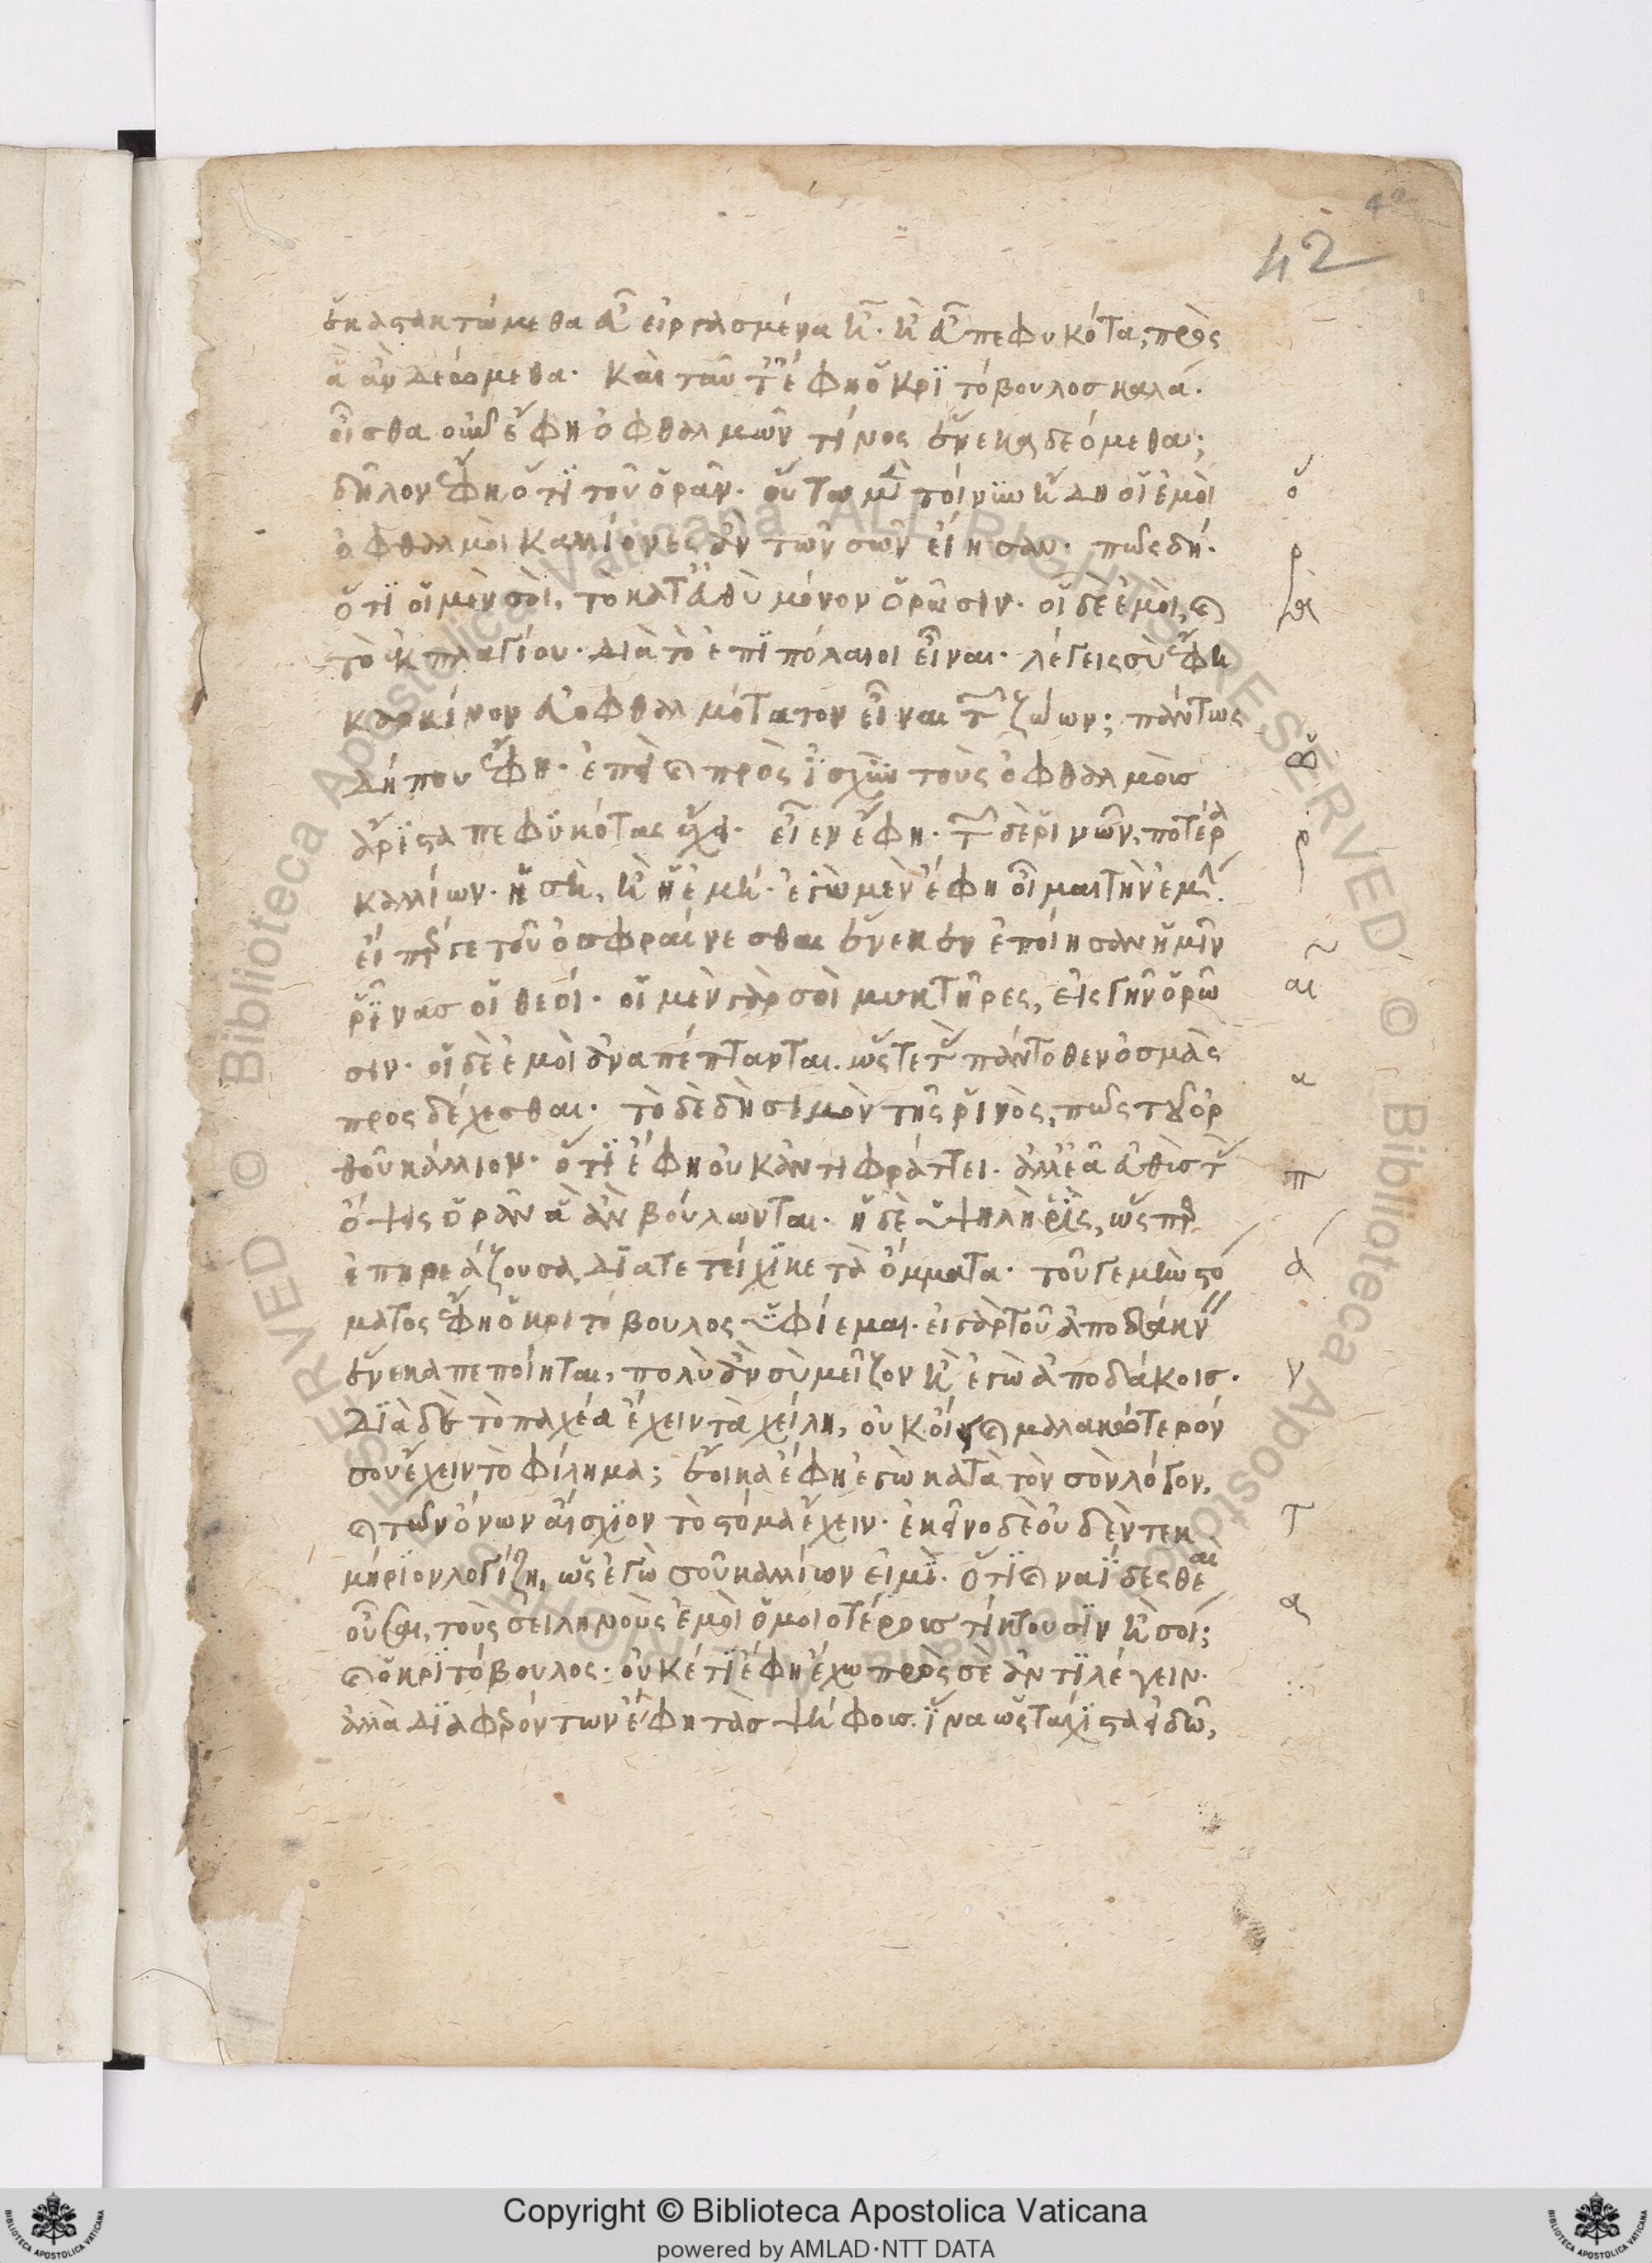 42
ἕκαστα κτώμεθα εὖ εἰργασμένα ἦ· ἢ εὖ πεφυκότα, πρὸς
ἃ ἂν δεώμεθα. καὶ ταῦτ' ἔφη ὁ κριτόβουλος καλά.
οἶσθα οὖν ἔφη ὀφθαλμῶν τίνος ἕνεκα δεόμεθα;
δῆλον ἔφη, ὅτι τοῦ ὁρᾶν. οὕτω μὲν τοίνυν ἤδη οἱ ἐμοὶ
ὀφθαλμοὶ καλλίονες ἂν τῶν σῶν εἴησαν. πῶς δή.
ὅτι οἱ μὲν σοὶ, τὸ κατ' εὐθὺ μόνον ὁρῶσιν. οἱ δὲ ἐμοὶ, καὶ
τὸ ἐκ πλαγίου. διὰ τὸ ἐπιπόλαιοι εἶναι. λέγεις σὺ ἔφη
καρκίνον εὐοφθαλμότατον εἶναι τῶν ζώων; πάντως
δήπου ἔφη. ἐπεὶ καὶ πρὸς ἰσχὺν τοὺς ὀφθαλμοὺς
ἄριστα πεφυκότας ἔχει. εἶεν ἔφη. τῶν δὲ ῥινῶν, ποτέρα
καλλίων. ἡ σὴ, ἢ ἡ ἐμή. ἐγὼ μὲν ἔφη οἶμαι τὴν ἐμὴν.
εἴπερ γε τοῦ ὀσφραίνεσθαι ἕνεκεν ἐποίησαν ἡμῖν
ῥῖνας οἱ θεοί. οἱ μὲν γὰρ σοὶ μυκτῆρες, εἰς γῆν ὁρῶ
σιν. οἱ δὲ ἐμοὶ ἀναπέπτανται. ὥστε τὰς πάντοθεν ὀσμὰς
προσδέχεσθαι. τὸ δὲ δὴ σιμὸν τῆς ῥινὸς, πῶς τοῦ ὀρ
θοῦ κάλλιον. ὅτι ἔφη οὐκ ἀντιφράττει. ἀλλ' ἐᾶ εὐθὺς τὰς
ὄψεις ὁρᾶν ἃ ἂν βούλωνται. ἡ δὲ ὑψηλὴ ῥὶς, ὥσπερ
ἐπηρεάζουσα, διατετείχικε τὰ ὄμματα. τοῦ γε μὴν στό
ματος ἔφη ὁ κριτόβουλος ὑφίεμαι. εἰ γὰρ τοῦ ἀποδάκνειν
ἕνεκα πεποίηται, πολὺ ἂν σὺ μεῖζον ἢ ἐγὼ ἀποδάκοις.
διὰ δὲ τὸ παχέα ἔχειν τὰ χείλη, οὐκ οἴει καὶ μαλακώτερόν
σου ἔχειν τὸ φίλημα; ἔοικα ἔφη ἐγὼ κατὰ τὸν σὸν λόγον,
καὶ τῶν ὄνων αἴσχιον τὸ στόμα ἔχειν. ἐκεῖνο δὲ οὐδὲν τεκ
μήριον λογίζη, ὡς ἐγὼ σοῦ καλλίων εἰμί. ὅτι καὶ ναΐδες θεαὶ
οὖσαι, τοὺς σειληνοὺς ἐμοὶ ὁμοιοτέρους τίκτουσιν ἢ σοί;
καὶ ὁ κριτόβουλος. οὐκέτι ἔφη ἔχω πρὸς σὲ ἀντιλέγειν.
ἀλλὰ διαφερόντων ἔφη τὰς ψήφους. ἵνα ὡς τάχιστα εἰδῶ,
Copyright © Biblioteca Apostolica Vaticana
powered by AMLAD·NTT DATA